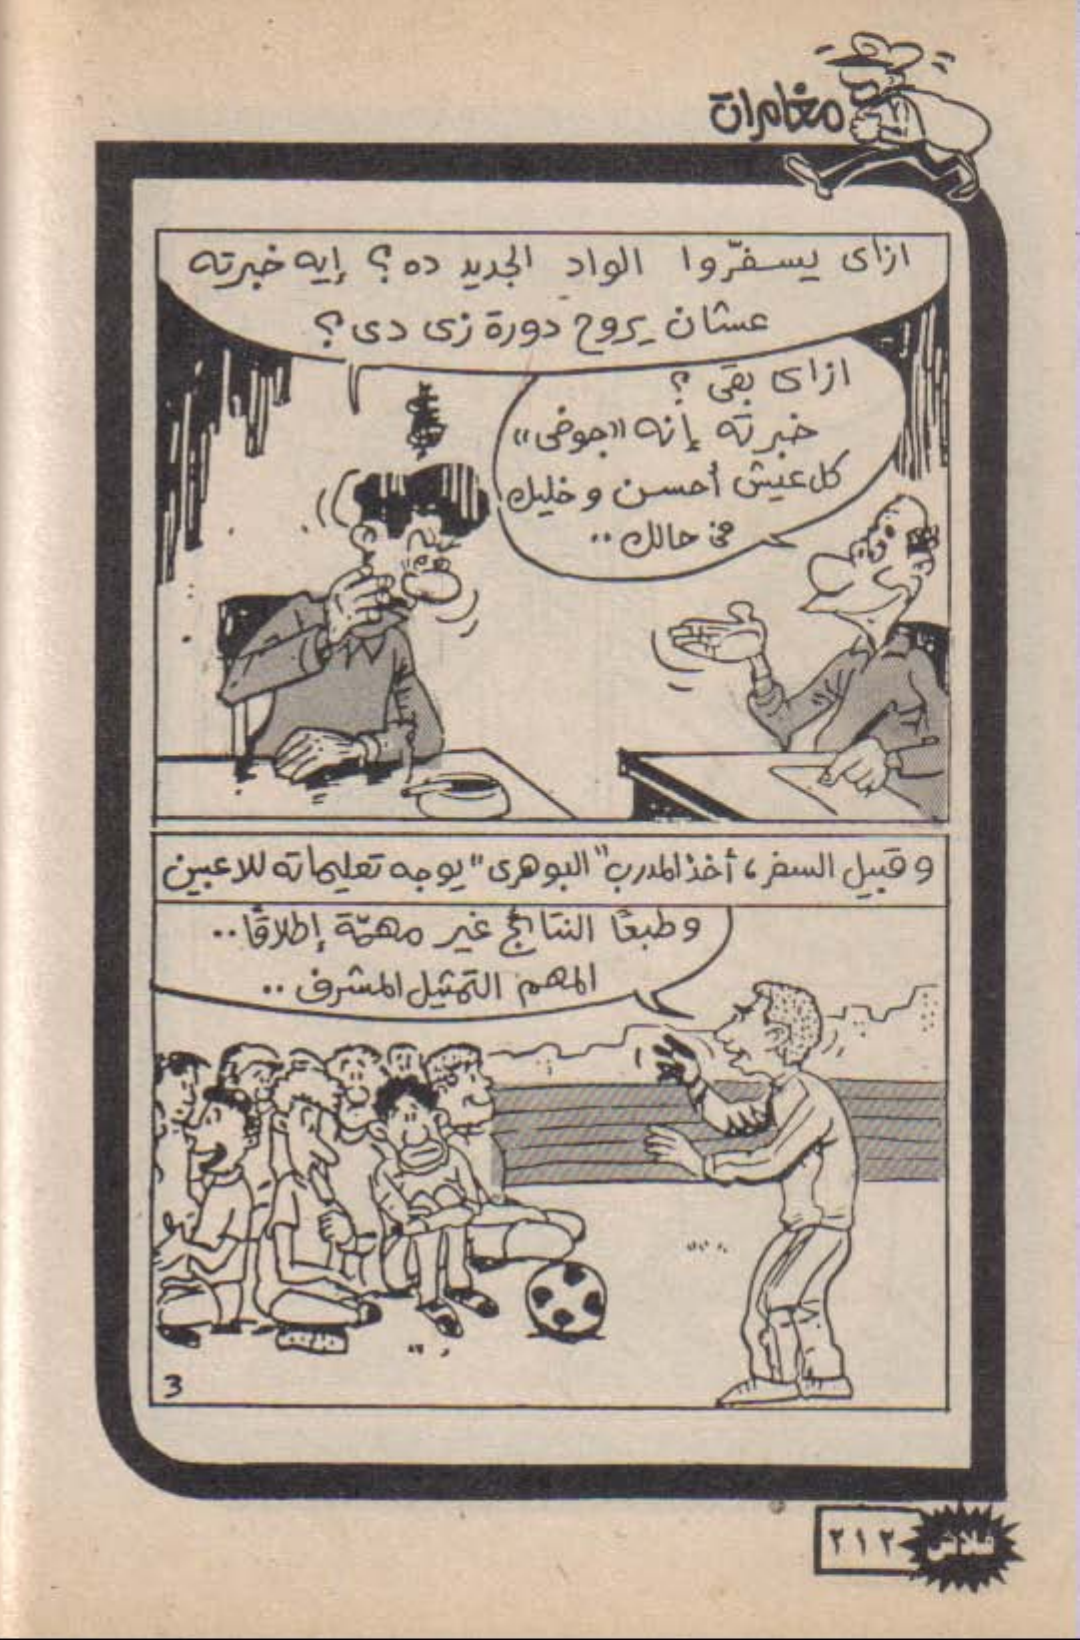 مغامرات
ازاى يسفّروا الواد الجديد ده؟ إيه خبرته
عشان يروح دورة زى دى؟
ازاى بقى؟
خبرته إنه "جوضى"
كل عيش أحسن وخليك
فى حالك..
وقبيل السفر، أخذ المدرب "البوهرى" يوجه تعليماته للاعبين
وطبعًا النتائج غير مهمّة إطلاقًا..
المهم التمثيل المشرف..
3
فلاش ٢١٢